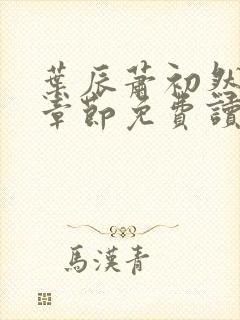 葉辰蕭初然
章節免費讀
馬漢青